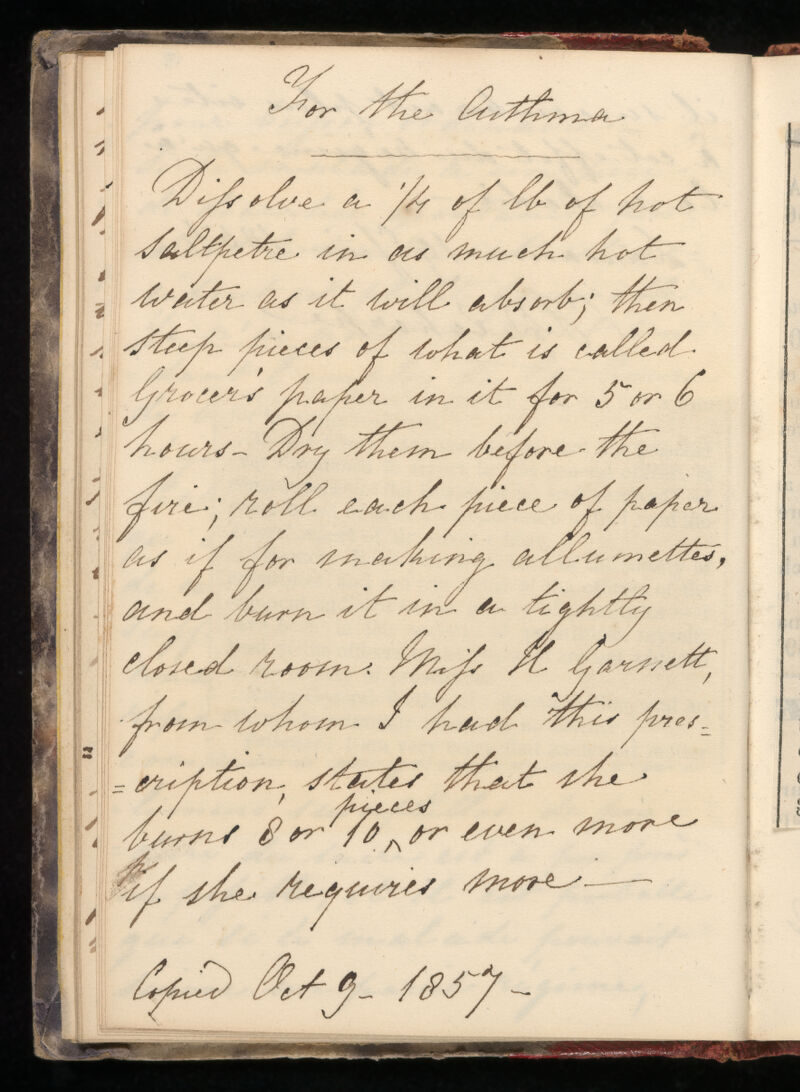 For the Asthma
Dissolve a 1/4 of lb of hot
saltpetre in as much hot
water as it will absorb; then
steep pieces of what is called
Grocer's paper in it for 5 or 6
hours - Dry them before the
fire; roll each piece of paper
as if for making allumettes,
and burn it in a tightly
closed room. Miss H Garnett,
from whom I had this pres=
=cription, states that she
pieces
burns 8 or 10 ^ or even more
if she requires more —
Copied Oct 9 - 1857 -